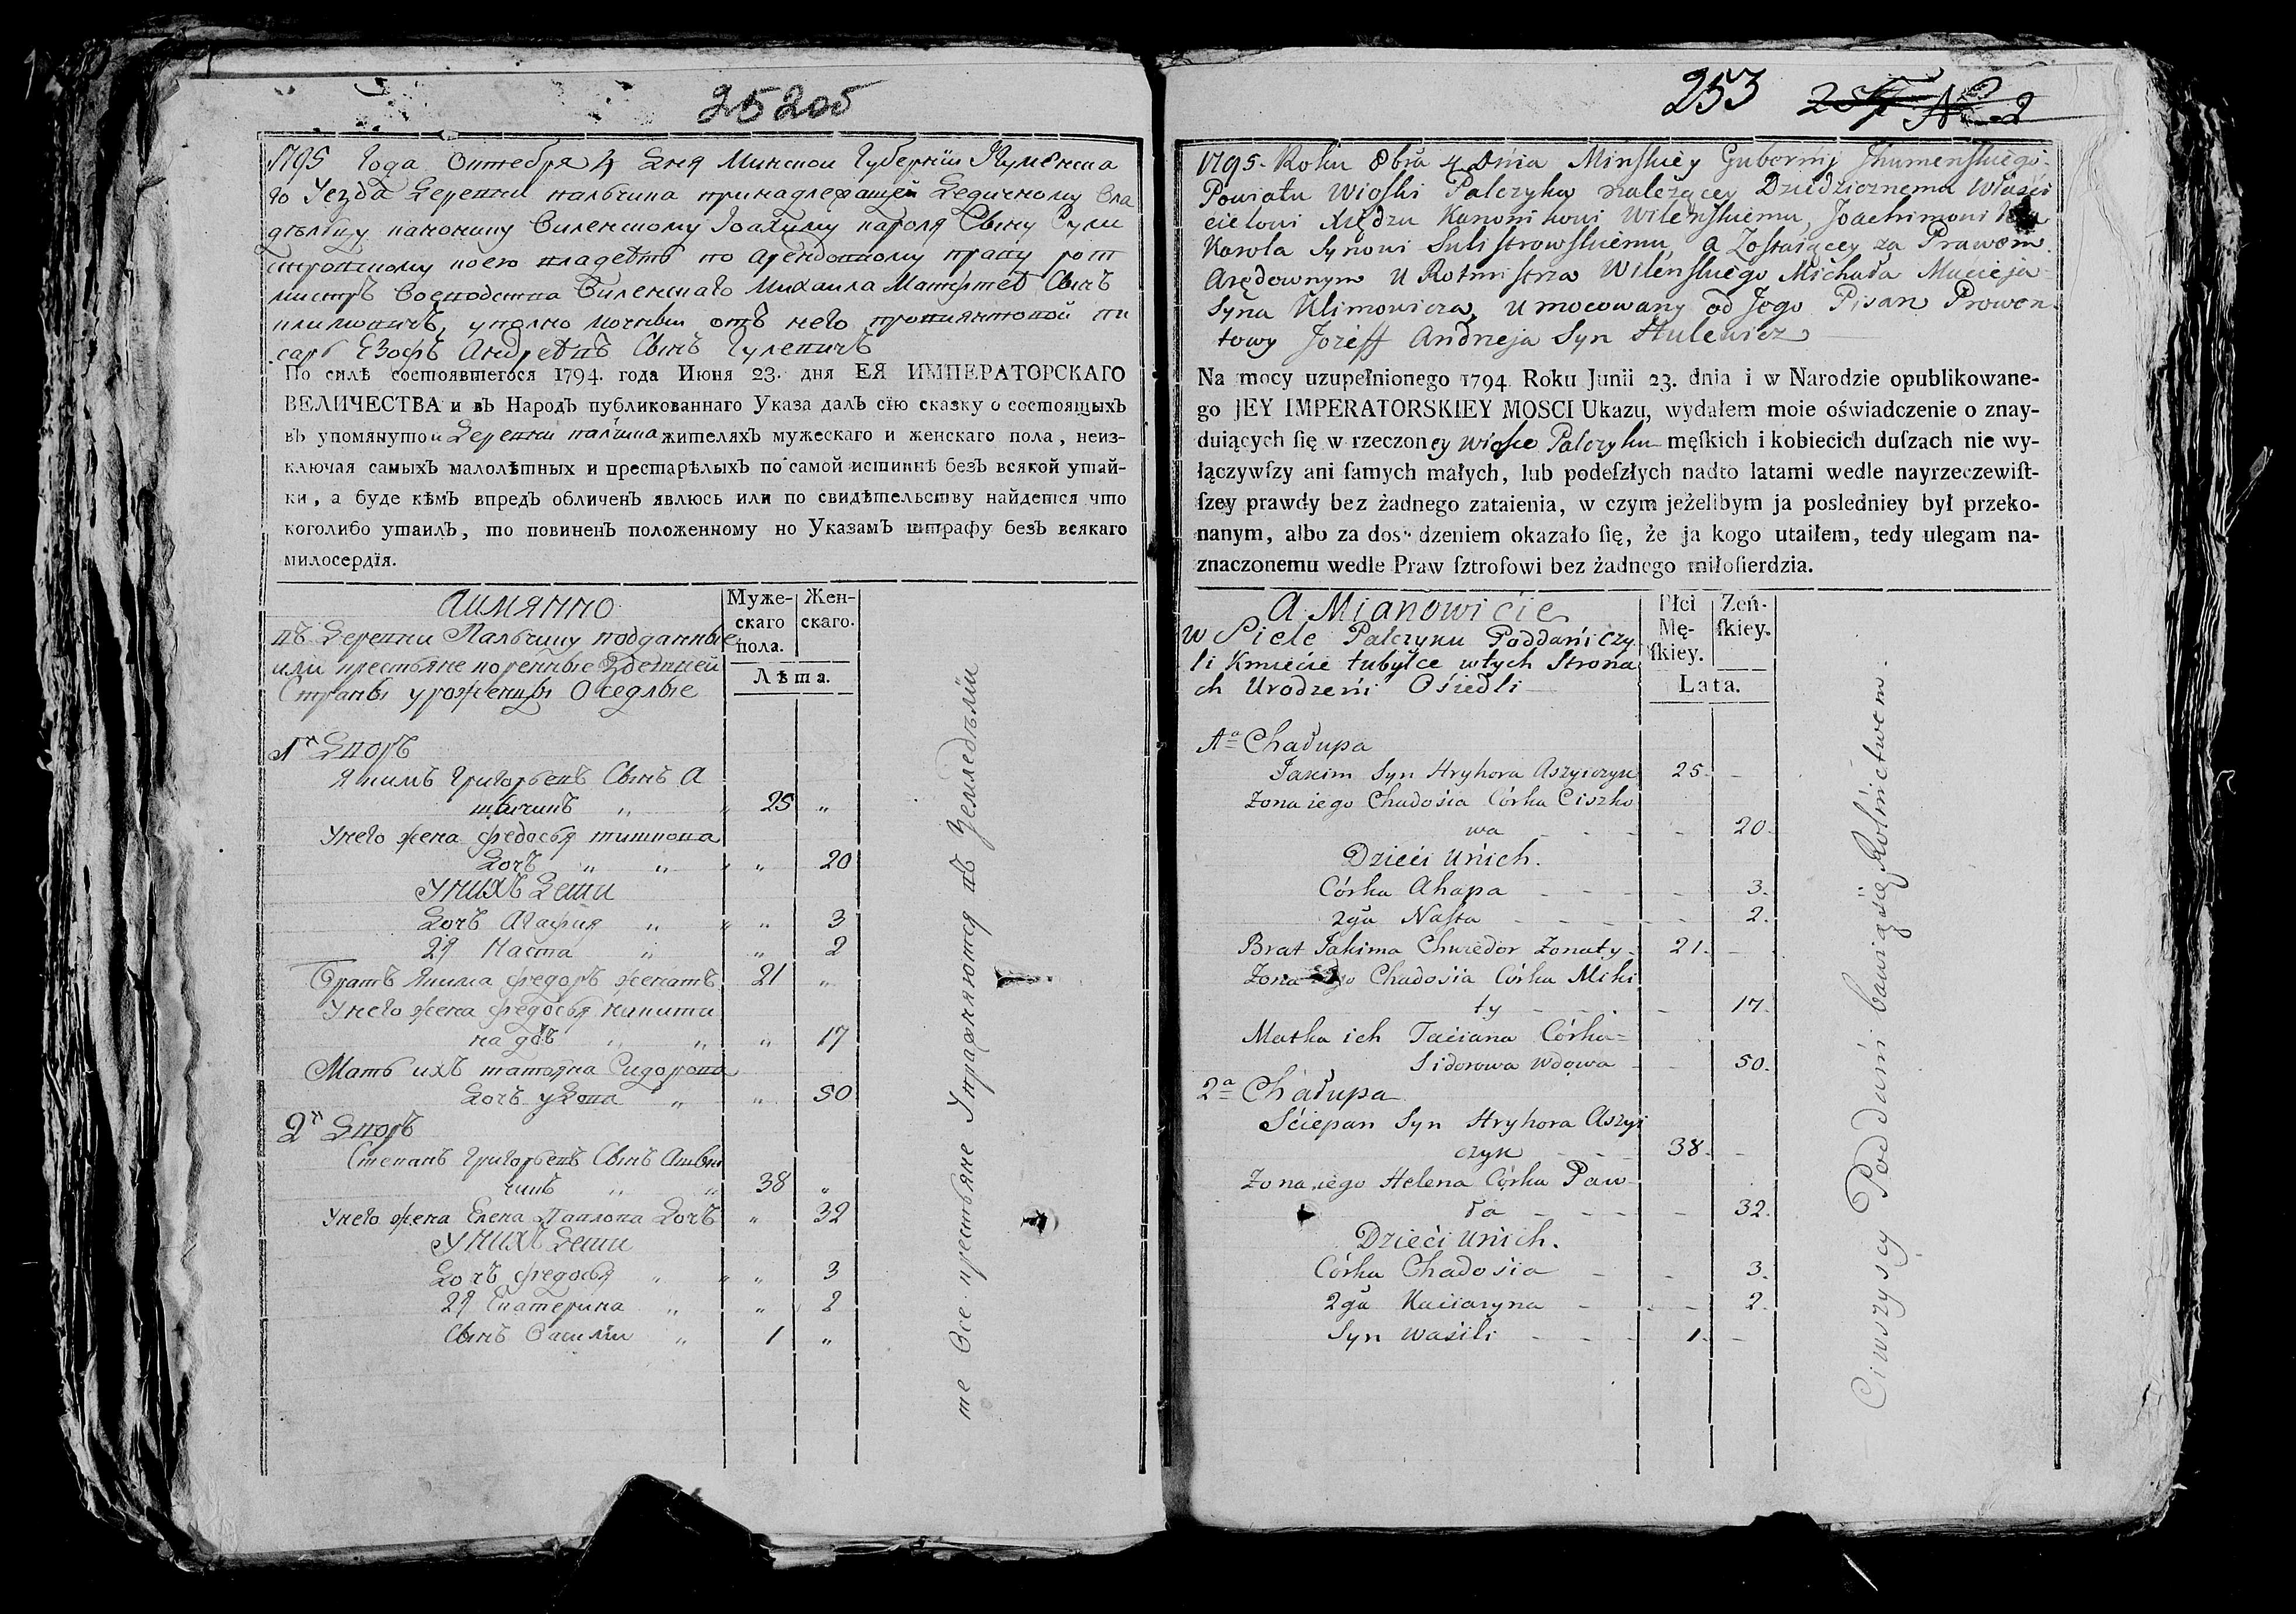 252об
1795 Года Октебря 4 Дня Минской Губернїи Игуменска
го Уезда Деревни пальчика принадлежащей Дедичному Вла
дѣльцу канонику Виленскому Іоахиму кароля Сыну Сули
стровскому коею владѣетъ по арендовному праву рот
мистръ Воеводства Виленскаго Михаила Матѣявъ Сынъ
климовичъ, уполно мочный отъ него провиянтовой пи
сарь Езофъ Андреѣвъ Сынъ Гулевичъ
По силѣ состоявшегося 1794. года Июня 23. дня ЕЯ ИМПЕРАТОРСКАГО
ВЕЛИЧЕСТВА и въ Народъ публикованнаго Указа далъ сїю сказку о состоящыхъ
въ упомянутои Деревни пальчика жителяхъ мужескаго и женскаго пола, неиз-
ключая самыхъ малолѣтныхъ и престарѣлыхъ по самой истиннѣ безъ всякой утай-
ки, а буде кѣмъ впредъ обличенъ явлюсь или по свидѣтельству найдется что
коголибо утаилъ, то повиненъ положенному по Указамъ штрафу безъ всякаго
милосердїя.
Аимянно
Муже-
скаго
пола.
Жен-
скаго.
Лѣта.
въ Деревни Пальчику подданные
или крестьяне коренные Здешней
Страны уроженцы Оседлые
1й Дворъ
Якимъ Григорьевъ Сынъ А
шычикъ „ „ 25 „
Унего жена федосья тишкова
Дочъ „ „ „ „ 20
Унихъ Дети
Дочъ Агафия „ „ „ 3
2я Наста „ „ 2
Братъ Якима федоръ женатъ 21 „
Унего жена федосья никити
на дочъ „ „ „ 17
Мать ихъ татьяна Сидорова
Дочъ удова „ „ 50
2й Дворъ
Степанъ Григорьевъ Сынъ Ашы
чикъ „ „ 38 „
Унего жена Елена Павлова Дочъ „ 32
Унихъ Дети
Дочъ федосья „ „ „ 3
2я Екатерина „ „ 2
Сынъ Василїи „ 1 „
те Все крестьяне Упражняются въ Земледѣлїи
253 254 № 2
1795. Roku 8bra 4 Dnia Minskiey Gubernij Ihumenskiego
Powiatu Wioski Palczyka należącey Dziedzicznemu Właści
cielowi Xiędzu Kanonikowi Wilenskiemu, Joachimowi
Karola Synowi Sulistrowskiemu, a Zostaiącey za Prawem
Arędownym u Rotmistrza Wilenskiego Michała Macieja
Syna Klimowicza, Umocowany od Jego Pisarz Prowen
towy Jozeff Andrzeja Syn Hulewicz
Na mocy uzupełnionego 1794 Roku Junii 23. dnia i w Narodzie opublikowane-
go JEY IMPERATORSKIEY MOSCI Ukazu, wydałem moie oświadczenie o znay-
duiących ſię w rzeczoney Wiosce Palczyku męſkich i kobiecich duſzach nie wy-
łączywſzy ani ſamych małych, lub podeſzłych nadto latami wedle nayrzeczewiſt-
ſzey prawdy bez żadnego zataienia, w czym jeżelibym ja posledniey był przeko-
nanym, albo za dos dzeniem okazało ſię, że ja kogo utaiłem, tedy ulegam na-
znaczonemu wedle Praw ſztrofowi bez żadnego miłoſierdzia.
A Mianowicie
Płci
Mę-
ſkiey.
Zeń-
ſkiey.
Lata.
w Siele Palczyku Poddani Czy
li Kmiecie tubylce wtych Strona
ch Urodzeni Osiedli
1a Chałupa
Jakim Syn Hryhora Aszyiczyk 25. -
Zona iego Chadosia Córka Ciszko
wa - - - - 20.
Dzieći unich.
Córka Ahapa - - - 3.
2ga Nasta - - - 2.
Brat Jakima Chwedor Zonaty. 21. -
Zona iego Chadosia Córka Miki
ty - - - 17.
Matka ich Taciana Córka=
Sidorowa Wdowa - 50.
2a Chałupa
Sćiepan Syn Hryhora Aszyi
czyk - - - 38. -
Zona iego Helena Córka Paw
ła - - - - 32.
Dzieći unich.
Córka Chadosia - - 3.
2ga Kaciaryna - - - 2.
Syn Wasili - - - 1. -
Ci wszyscy Poddani bawią się Rolnictwem.